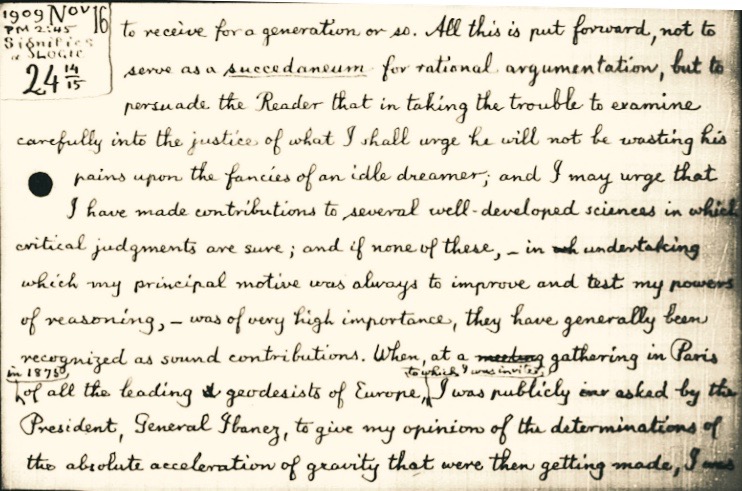 1909 Nov 16
PM 2:45
Significs
& LOGIC
24 14/15
to receive for a generation or so. All this is put forward, not to
serve as a succedaneum for rational argumentation, but to
persuade the Reader that in taking the trouble to examine
carefully into the justice of what I shall urge he will not be wasting his
pains upon the fancies of an idle dreamer; and I may urge that
I have made contributions to several well-developed sciences in which
critical judgments are sure; and if none of these, – in wh undertaking
which my principal motive was always to improve and test my powers
of reasoning, – was of very high importance, they have generally been
recognized as sound contributions. When, at a meeting gathering in Paris
in 1875 to which I was invited,
of all the leading geodesists of Europe, I was publicly asked by the
President, General Ibanez, to give my opinion of the determinations of
the absolute acceleration of gravity that were then getting made, I was